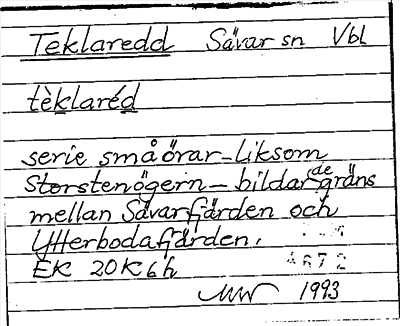 Teklaredd Sävar sn Vbl
tèklaréd
serie småörar - liksom
Storstenögern - bildar de gräns
mellan Sävarfjärden och
Ytterbodafjärden.
EK 20K6h
1993